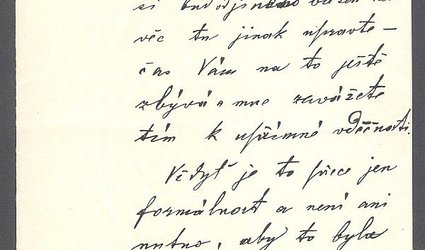 si
věc tu jinak upravte –
čas Vám na to ještě
zbývá a mne zavážete
tím k upřímné vděčnosti.
Vždyť je to přece jen
formálnost a není ani
nutno, aby to byla